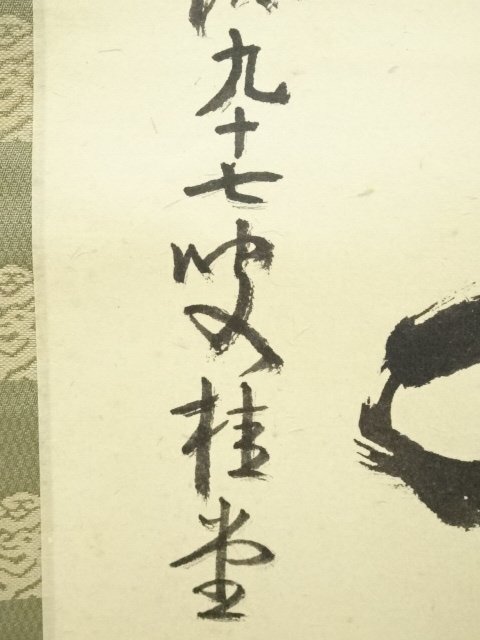 九十七叟桂堂